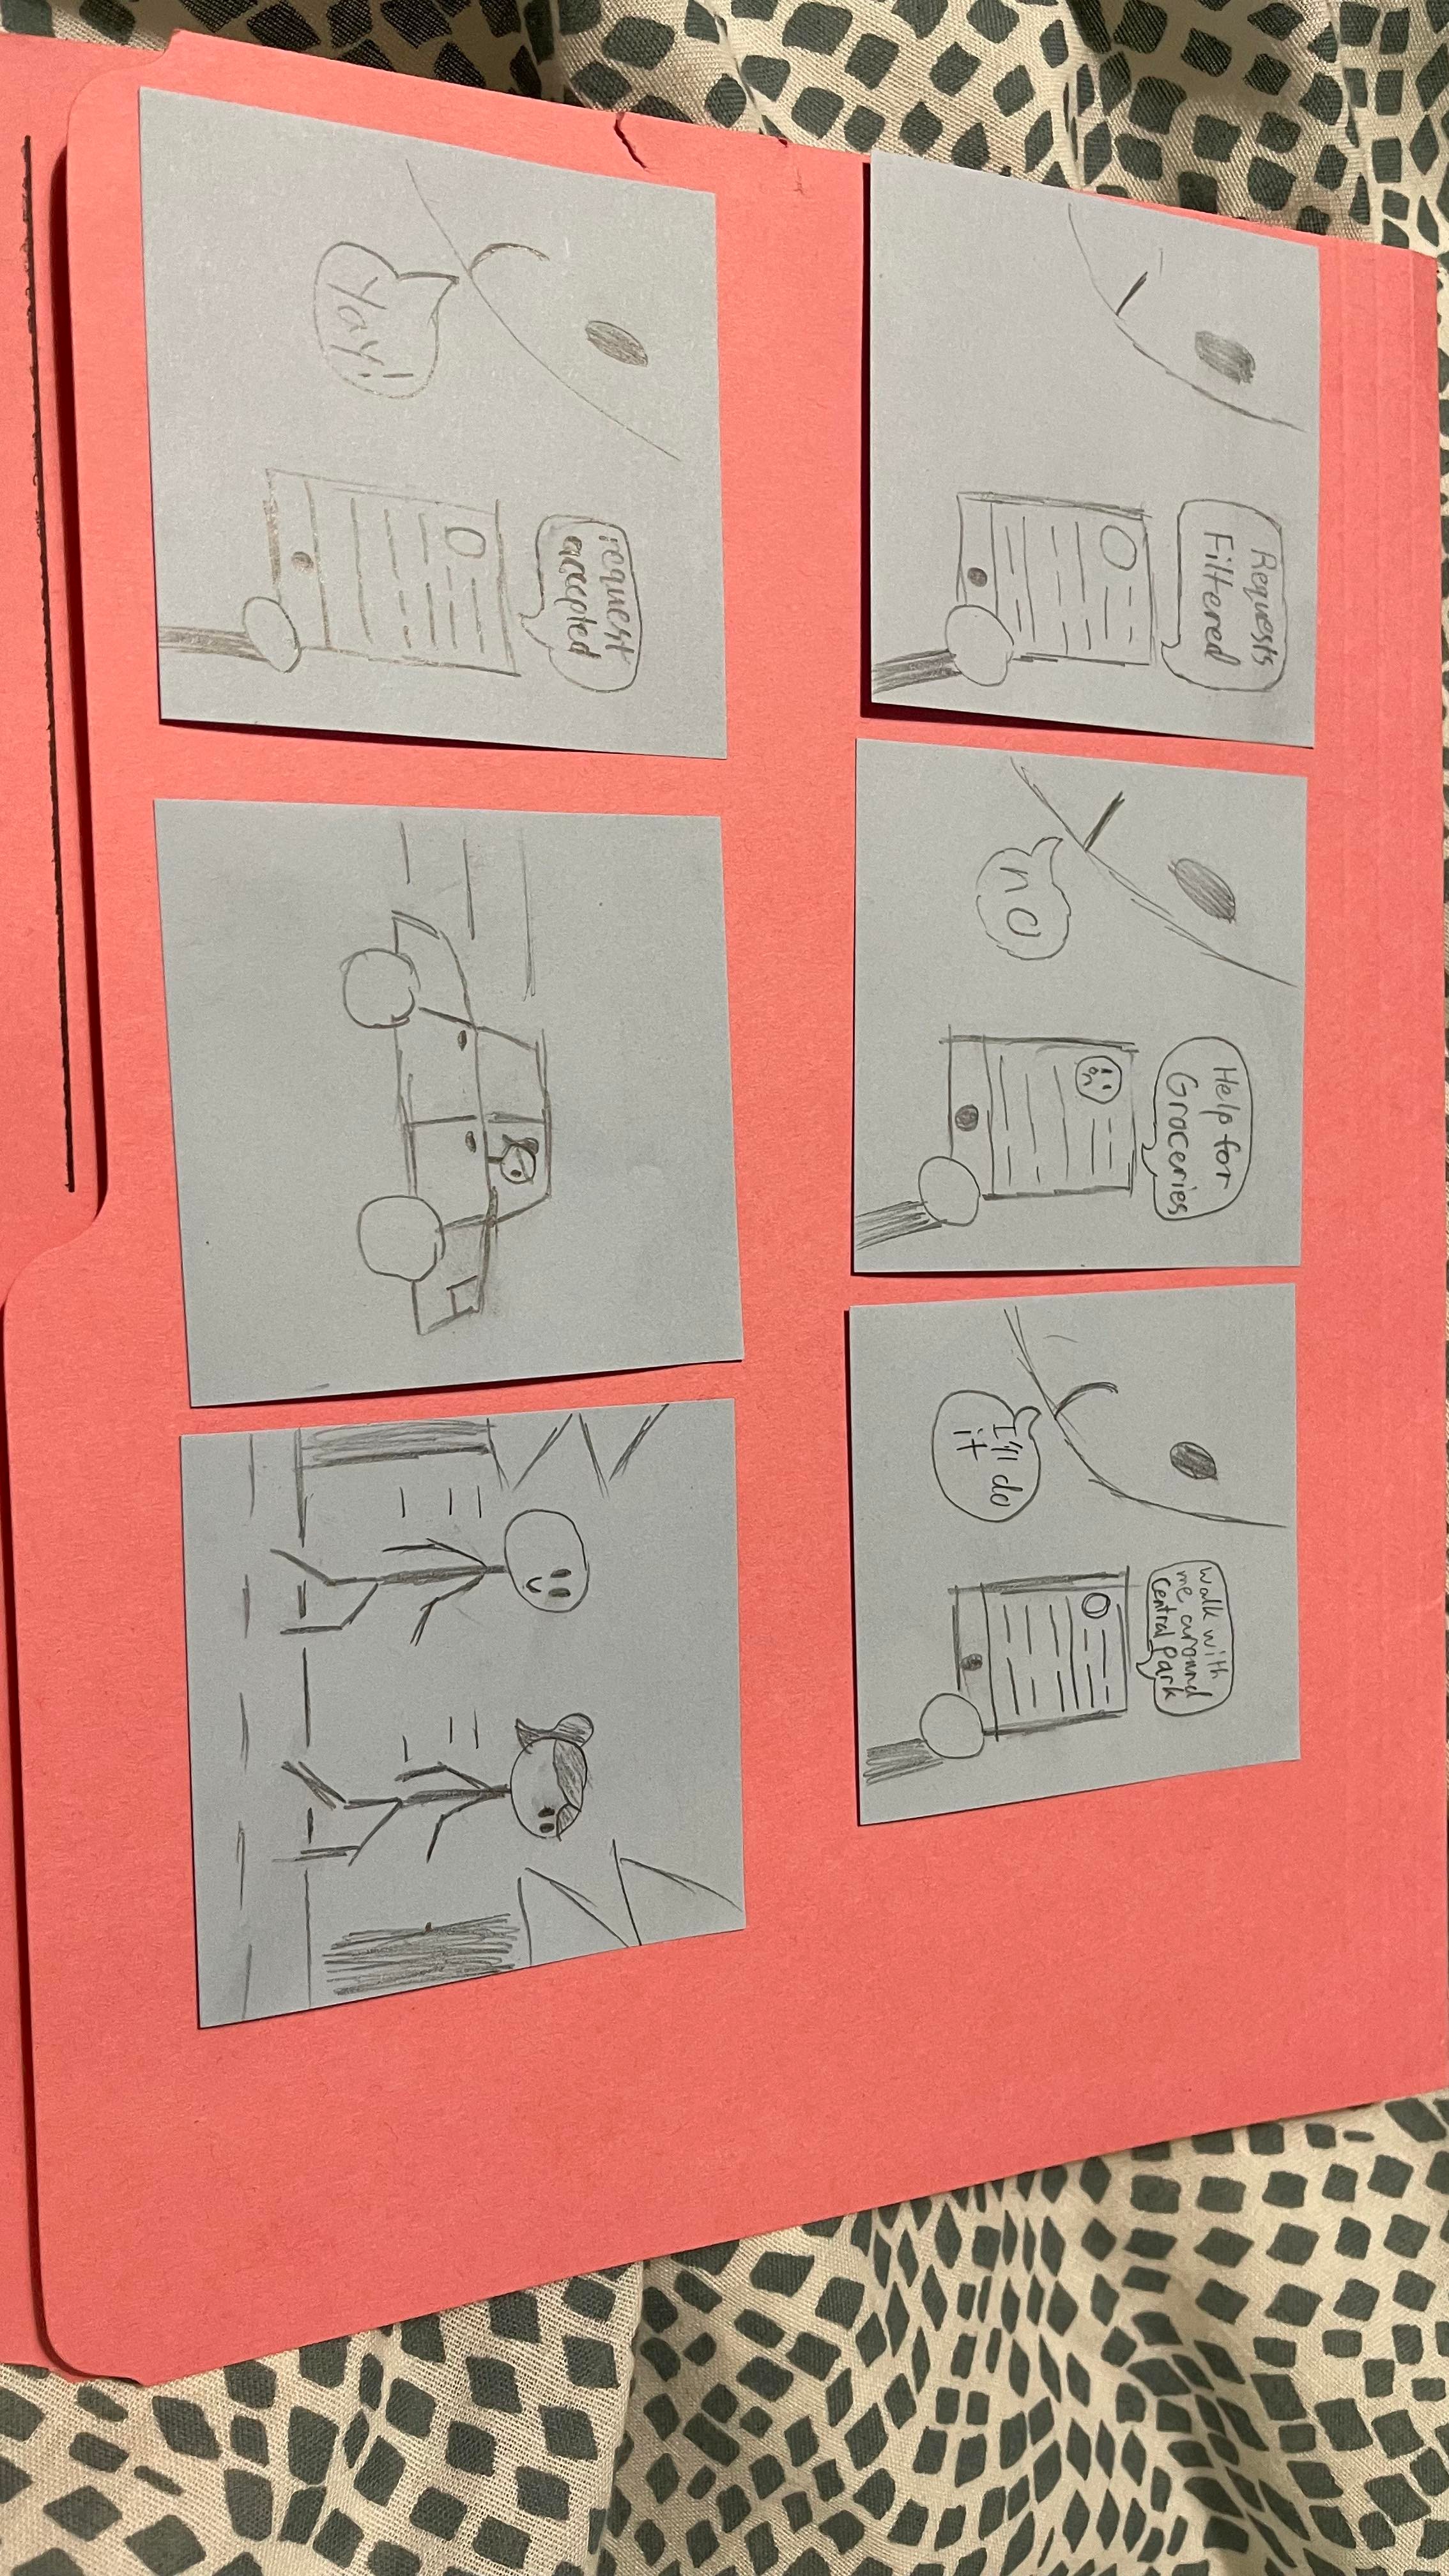 Requests
Filtered
Help for
Groceries
no
walk with
me around
Central Park
I'll do
it
request
accepted
Yay!